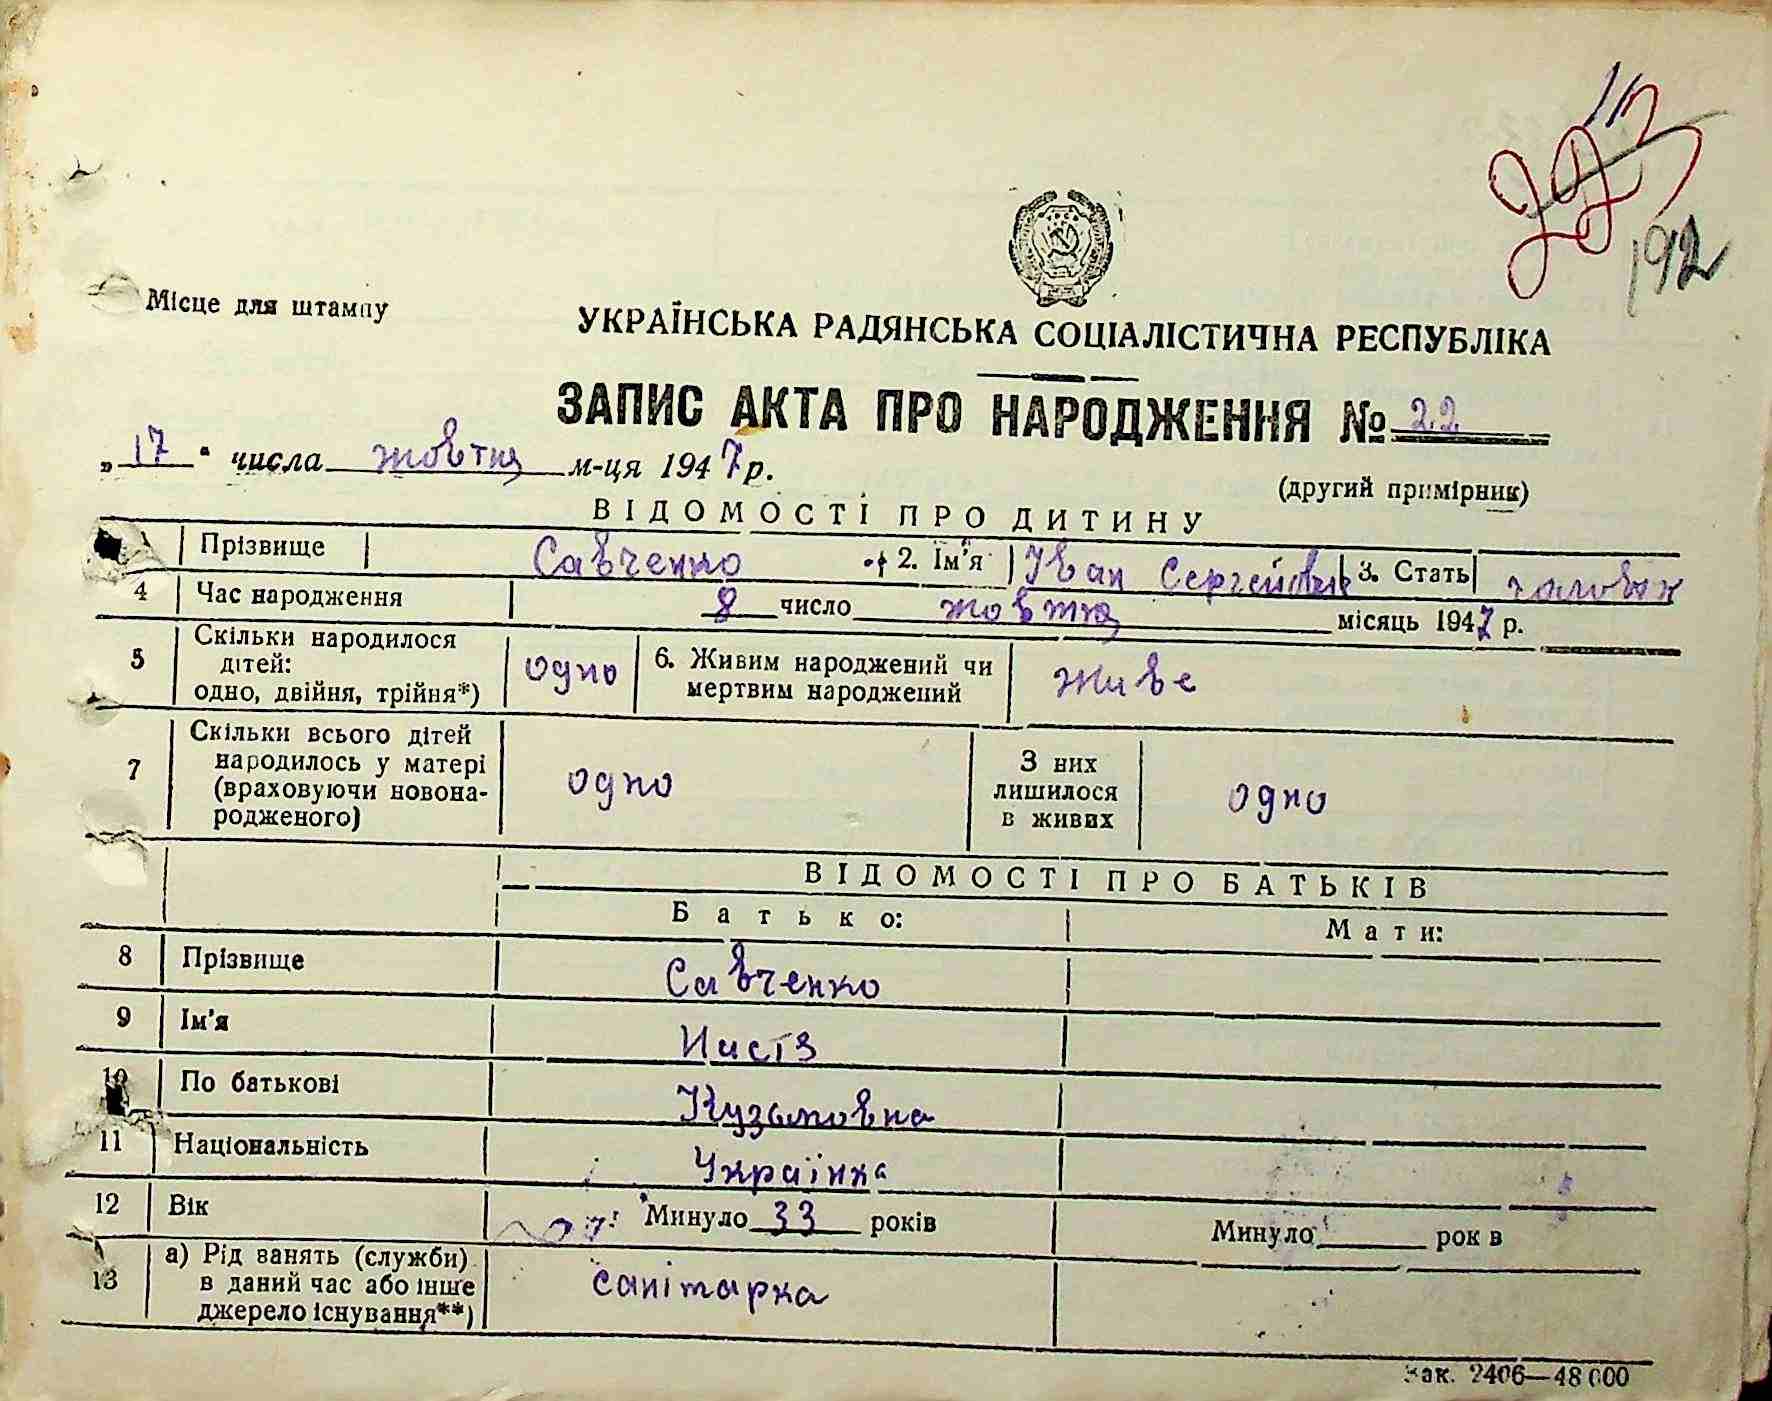 192
Місце для штампу
УКРАЇНСЬКА РАДЯНСЬКА СОЦІАЛІСТИЧНА РЕСПУБЛІКА
ЗАПИС АКТА ПРО НАРОДЖЕННЯ № 22
„17“ числа жовтня м-ця 1947 р.
(другий примірник)
ВІДОМОСТІ ПРО ДИТИНУ
Прізвище Савченко 2. Ім'я Іван Сергейович 3. Стать чоловіч
4 Час народження 8 число жовтня місяць 1947 р.
5 Скільки народилося дітей: одно, двійня, трійня*) одно 6. Живим народжений чи мертвим народжений живе
7 Скільки всього дітей народилось у матері (враховуючи новонародженого) одно З них лишилося в живих одно
ВІДОМОСТІ ПРО БАТЬКІВ
Батько: Мати:
8 Прізвище Савченко
9 Ім'я
10 По батькові Кузьмовна
11 Національність Українка
12 Вік Минуло 33 років Минуло рок в
13 а) Рід занять (служби) в даний час або інше джерело існування**) санітарка
Зак. 2406—48 000